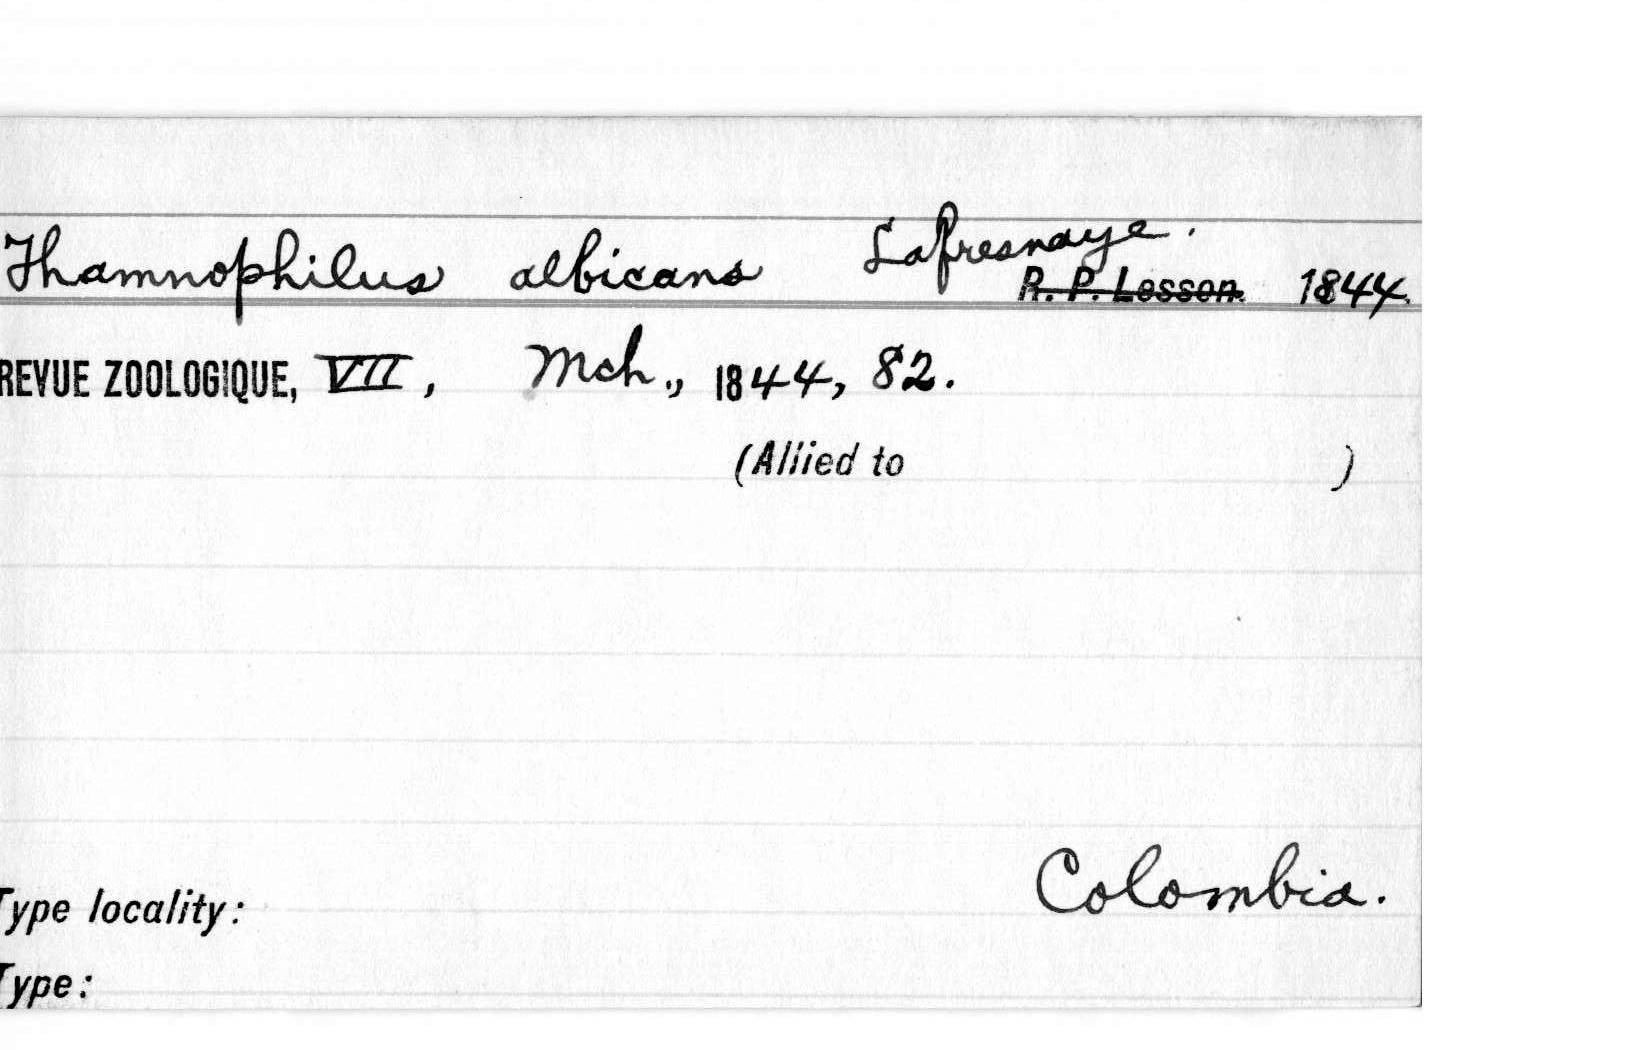 Thamnophilus albicans Lafresnaye.
R. P. Lesson. 1844.
REVUE ZOOLOGIQUE, VII, Mch., 1844, 82.
(Allied to )
Colombia.
Type locality:
Type: